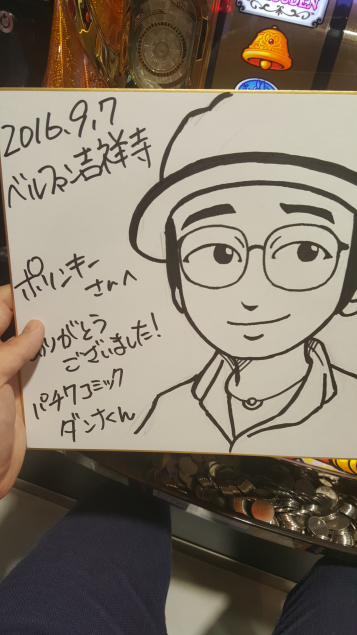 2016.9.7
ベルファン吉祥寺
ポリンキー
さんへ
ありがとう
ございました!
パチ7コミック
ダンナくん